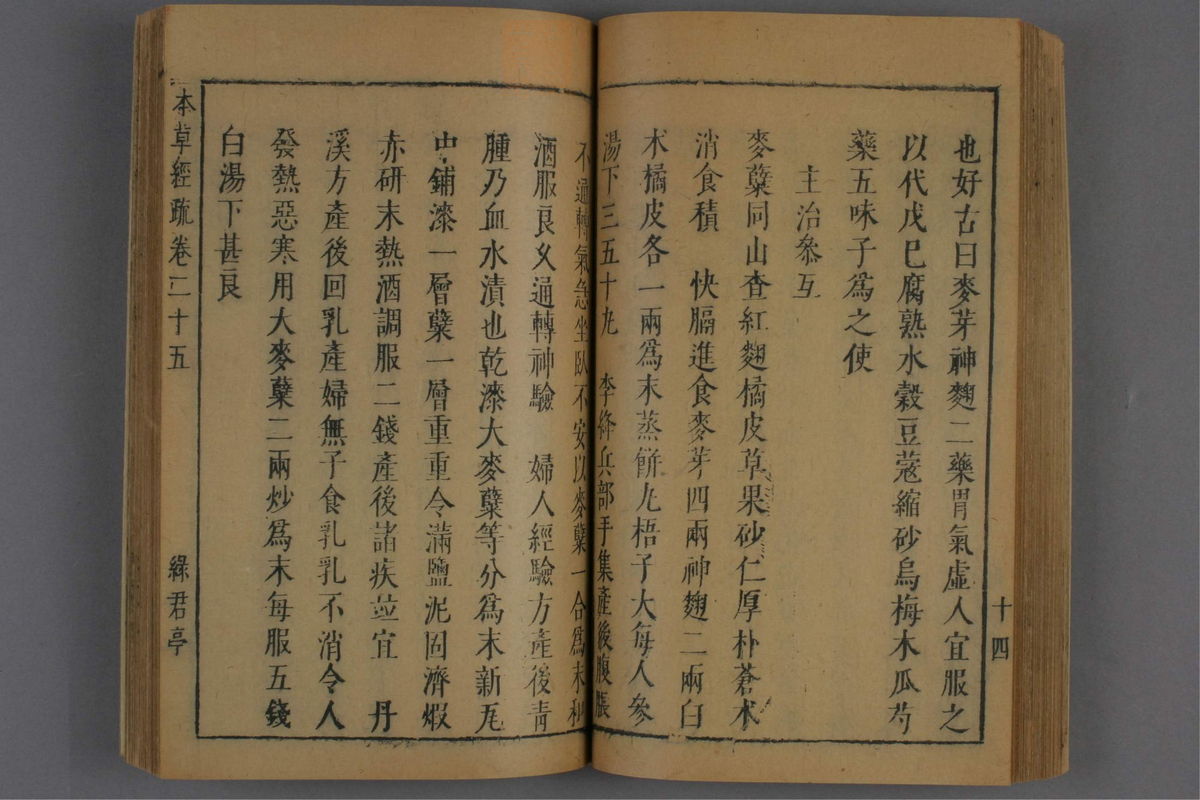 十四
也好古曰麥芽神麴二藥胃氣虛人宜服之
以代戊巳腐熟水穀豆蔻縮砂烏梅木瓜芍
藥五味子爲之使
主治叅互
麥蘖同山查紅麴橘皮草果砂仁厚朴蒼术
消食積　快膈進食麥芽四兩神麴二兩白
术橘皮各一兩爲末蒸餅丸梧子大每人參
湯下三五十丸　李絳兵部手集產後腹脹
不通轉氣急坐臥不安以麥蘖一合爲末和
酒服良乆通轉神驗　婦人經驗方產後青
腫乃血水漬也乾漆大麥蘖等分爲末新瓦
中鋪漆一層蘖一層重重令滿鹽泥固濟煆
赤研末熱酒調服二錢產後諸疾並宜　丹
溪方產後回乳產婦無子食乳乳不消令人
發熱惡寒用大麥蘖二兩炒爲末每服五錢
白湯下甚良
本草經疏卷二十五　綠君亭